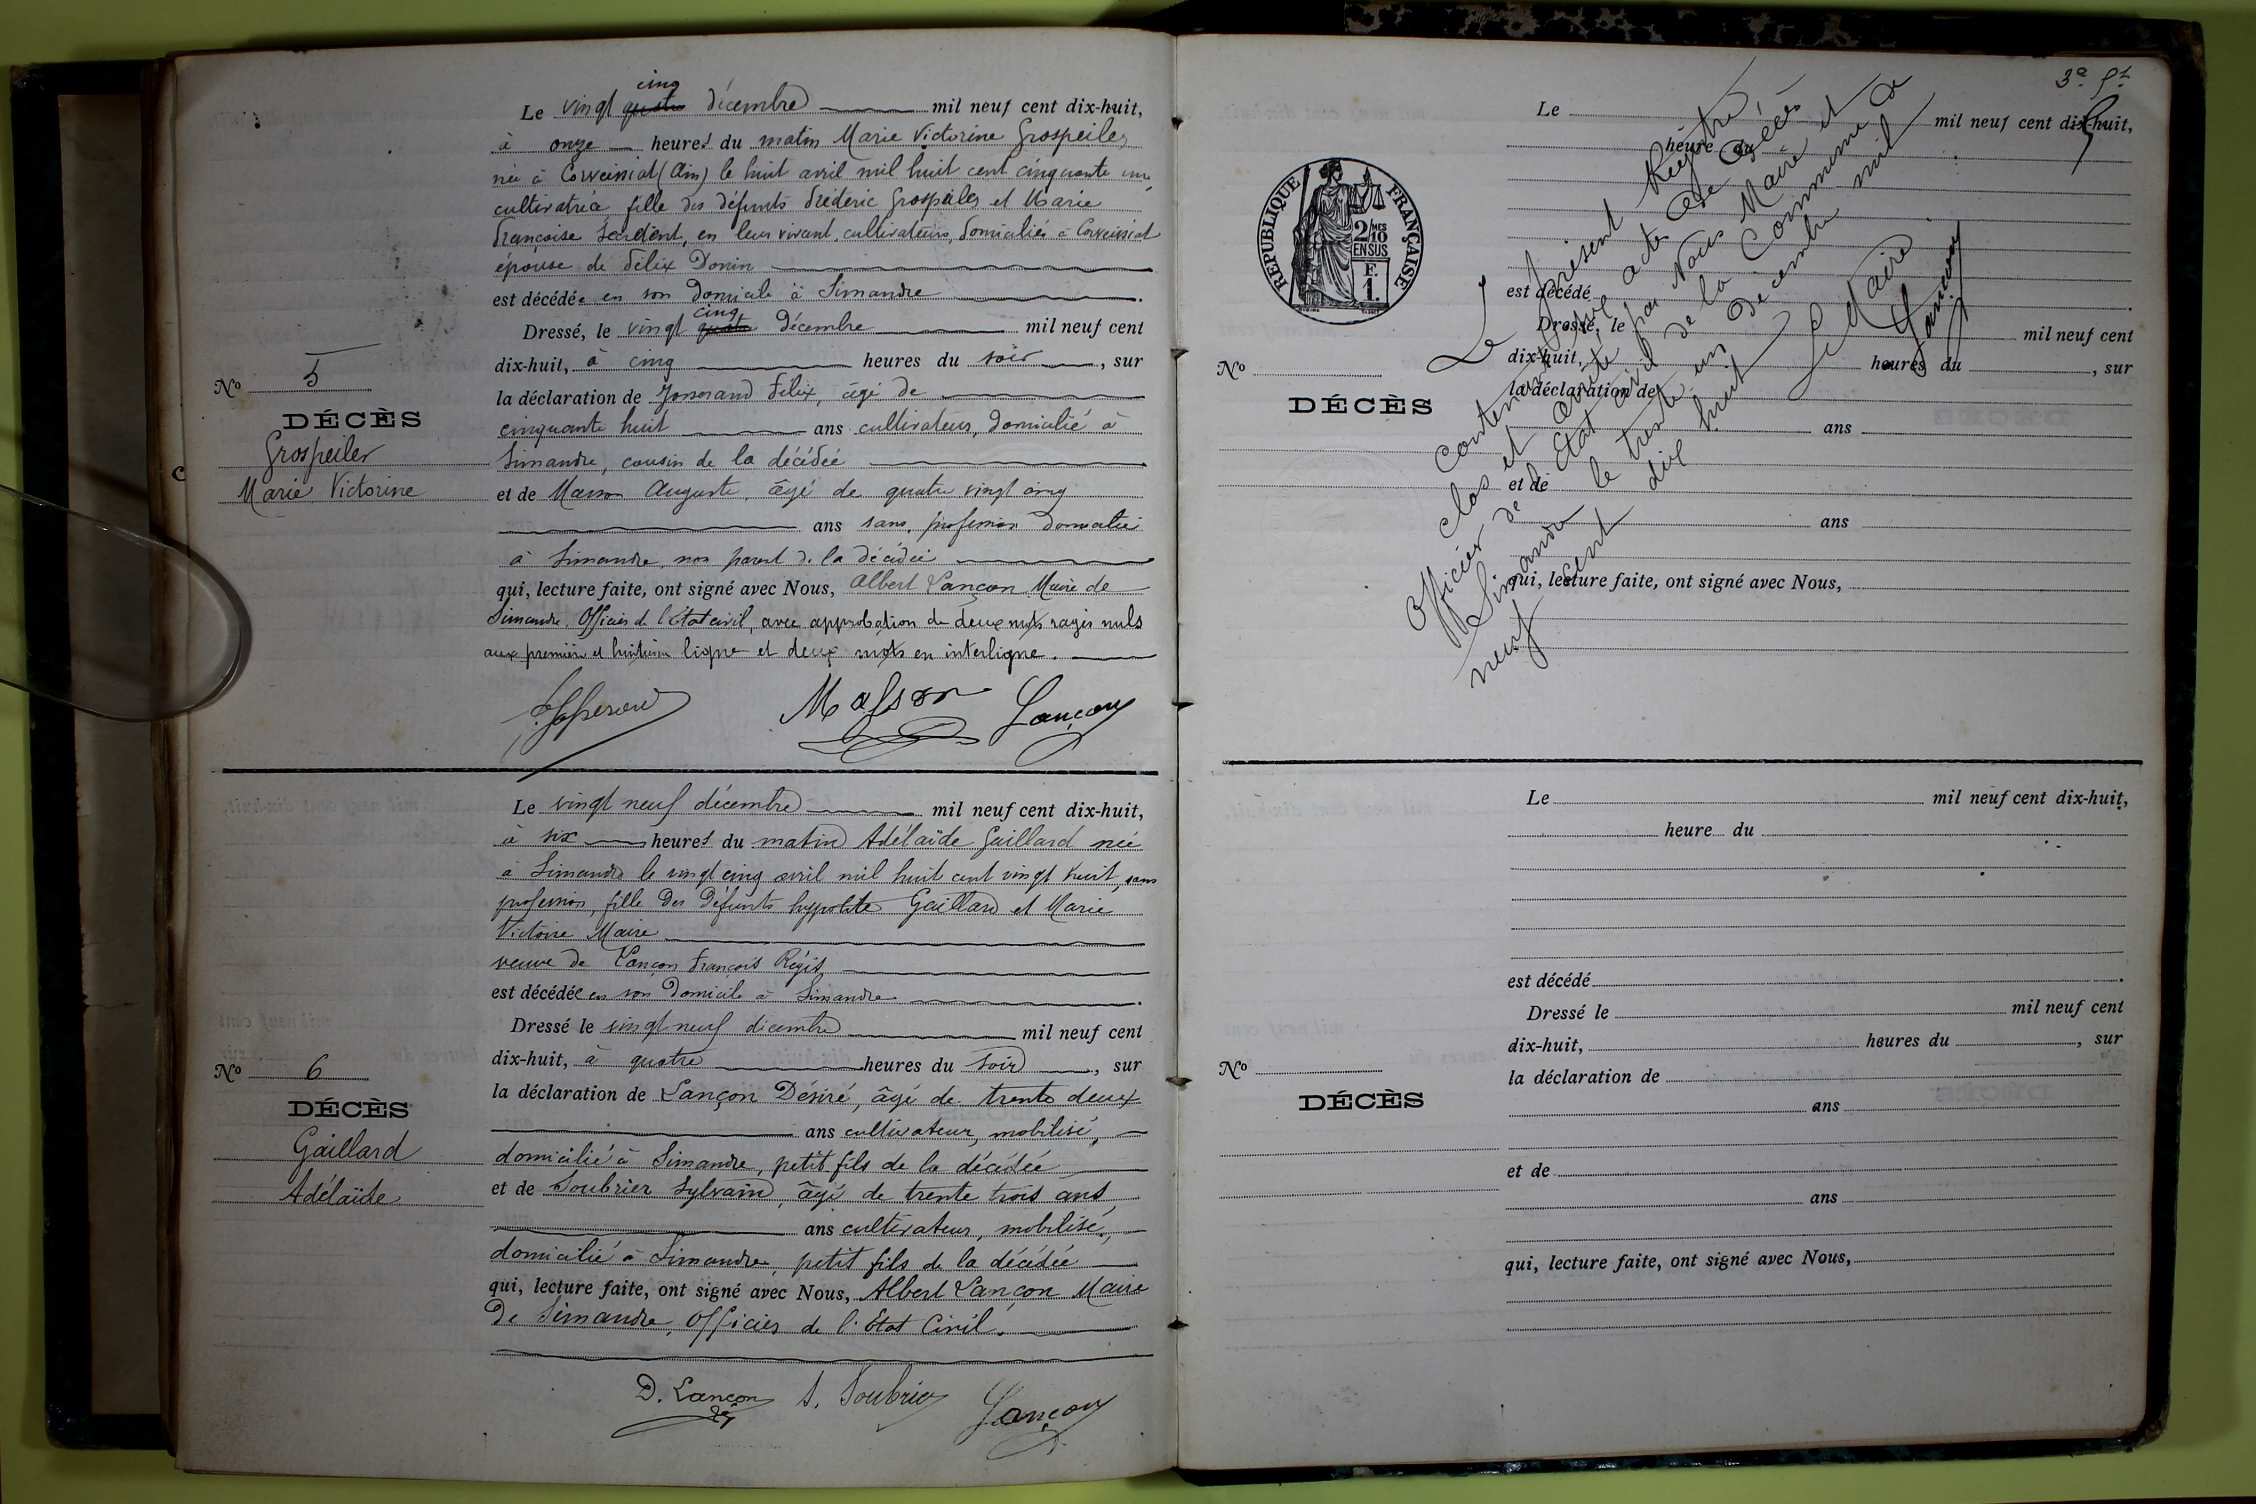 cinq
Le vingt quatre décembre mil neuf cent dix-huit,
à onze heures du matin Marie Victorine Grospeiler
née à Corveissiat (Ain) le huit avril mil huit cent cinquante une,
cultivatrice, fille des défunts Frédéric Grospeiler et Marie
Françoise en leur vivant, cultivateurs, domiciliés à Corveissiat
épouse de Félix Donin
est décédée en son domicile à Simandre
cinq
Dressé, le vingt quatre décembre mil neuf cent
dix-huit, à cinq heures du soir, sur
la déclaration de Josserand Félix, âgé de
cinquante huit ans cultivateur, domicilié à
Simandre, cousin de la décédée
et de Masson Auguste, âgé de quatre vingt cinq
ans sans profession domicilié
à Simandre, non parent de la décédée
qui, lecture faite, ont signé avec Nous, Albert Lançon Maire de
Simandre Officier de l'État civil, avec approbation de deux mots rayés nuls
aux première et huitième ligne et deux mots en interligne.
Masson Lançon
No 5
DÉCÈS
Grospeiler
Marie Victorine
Le vingt neuf décembre mil neuf cent dix-huit,
à six heures du matin Adélaïde Gaillard née
à Simandre le vingt cinq avril mil huit cent vingt huit, sans
profession, fille des défunts hyppolite Gaillard et Marie
Victoire Maire
veuve de Lançon François Régis
est décédée en son domicile à Simandre
Dressé le vingt neuf décembre mil neuf cent
dix-huit, à quatre heures du soir, sur
la déclaration de Lançon Désiré, âgé de trente deux
ans cultivateur, mobilisé,
domicilié à Simandre, petit fils de la décédée
et de Soubrier Sylvain, âgé de trente trois ans
ans cultivateur, mobilisé,
domicilié à Simandre, petit fils de la décédée
qui, lecture faite, ont signé avec Nous, Albert Lançon Maire
de Simandre, Officier de l'État Civil.
D. Lançon S. Soubrier Lançon
No 6
DÉCÈS
Gaillard
Adélaïde
Le mil neuf cent dix-huit,
heure du
est décédé
Dressé, le mil neuf cent
dix-huit, heures du , sur
la déclaration de
ans
et de
ans
qui, lecture faite, ont signé avec Nous,
RÉPUBLIQUE FRANÇAISE
2/10 MES
EN SUS
F.
1.
No
DÉCÈS
Le présent Registre
contenant six actes de Décès
clos et arrêté par Nous Maire et
Officier de l'État civil de la Commune de
Simandre le trente un décembre mil
neuf cent dix huit
Le Maire
Lançon
Le mil neuf cent dix-huit,
heure du
est décédé
Dressé le mil neuf cent
dix-huit, heures du , sur
la déclaration de
ans
et de
ans
qui, lecture faite, ont signé avec Nous,
No
DÉCÈS